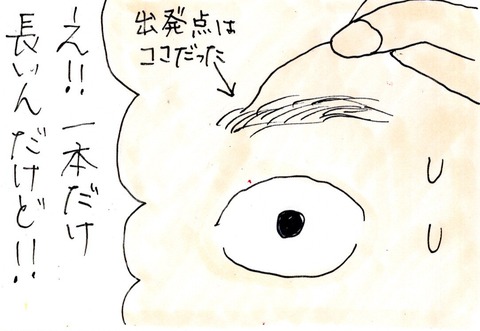 え!!一本だけ
長いんだけど!!
出発点は
ココだった